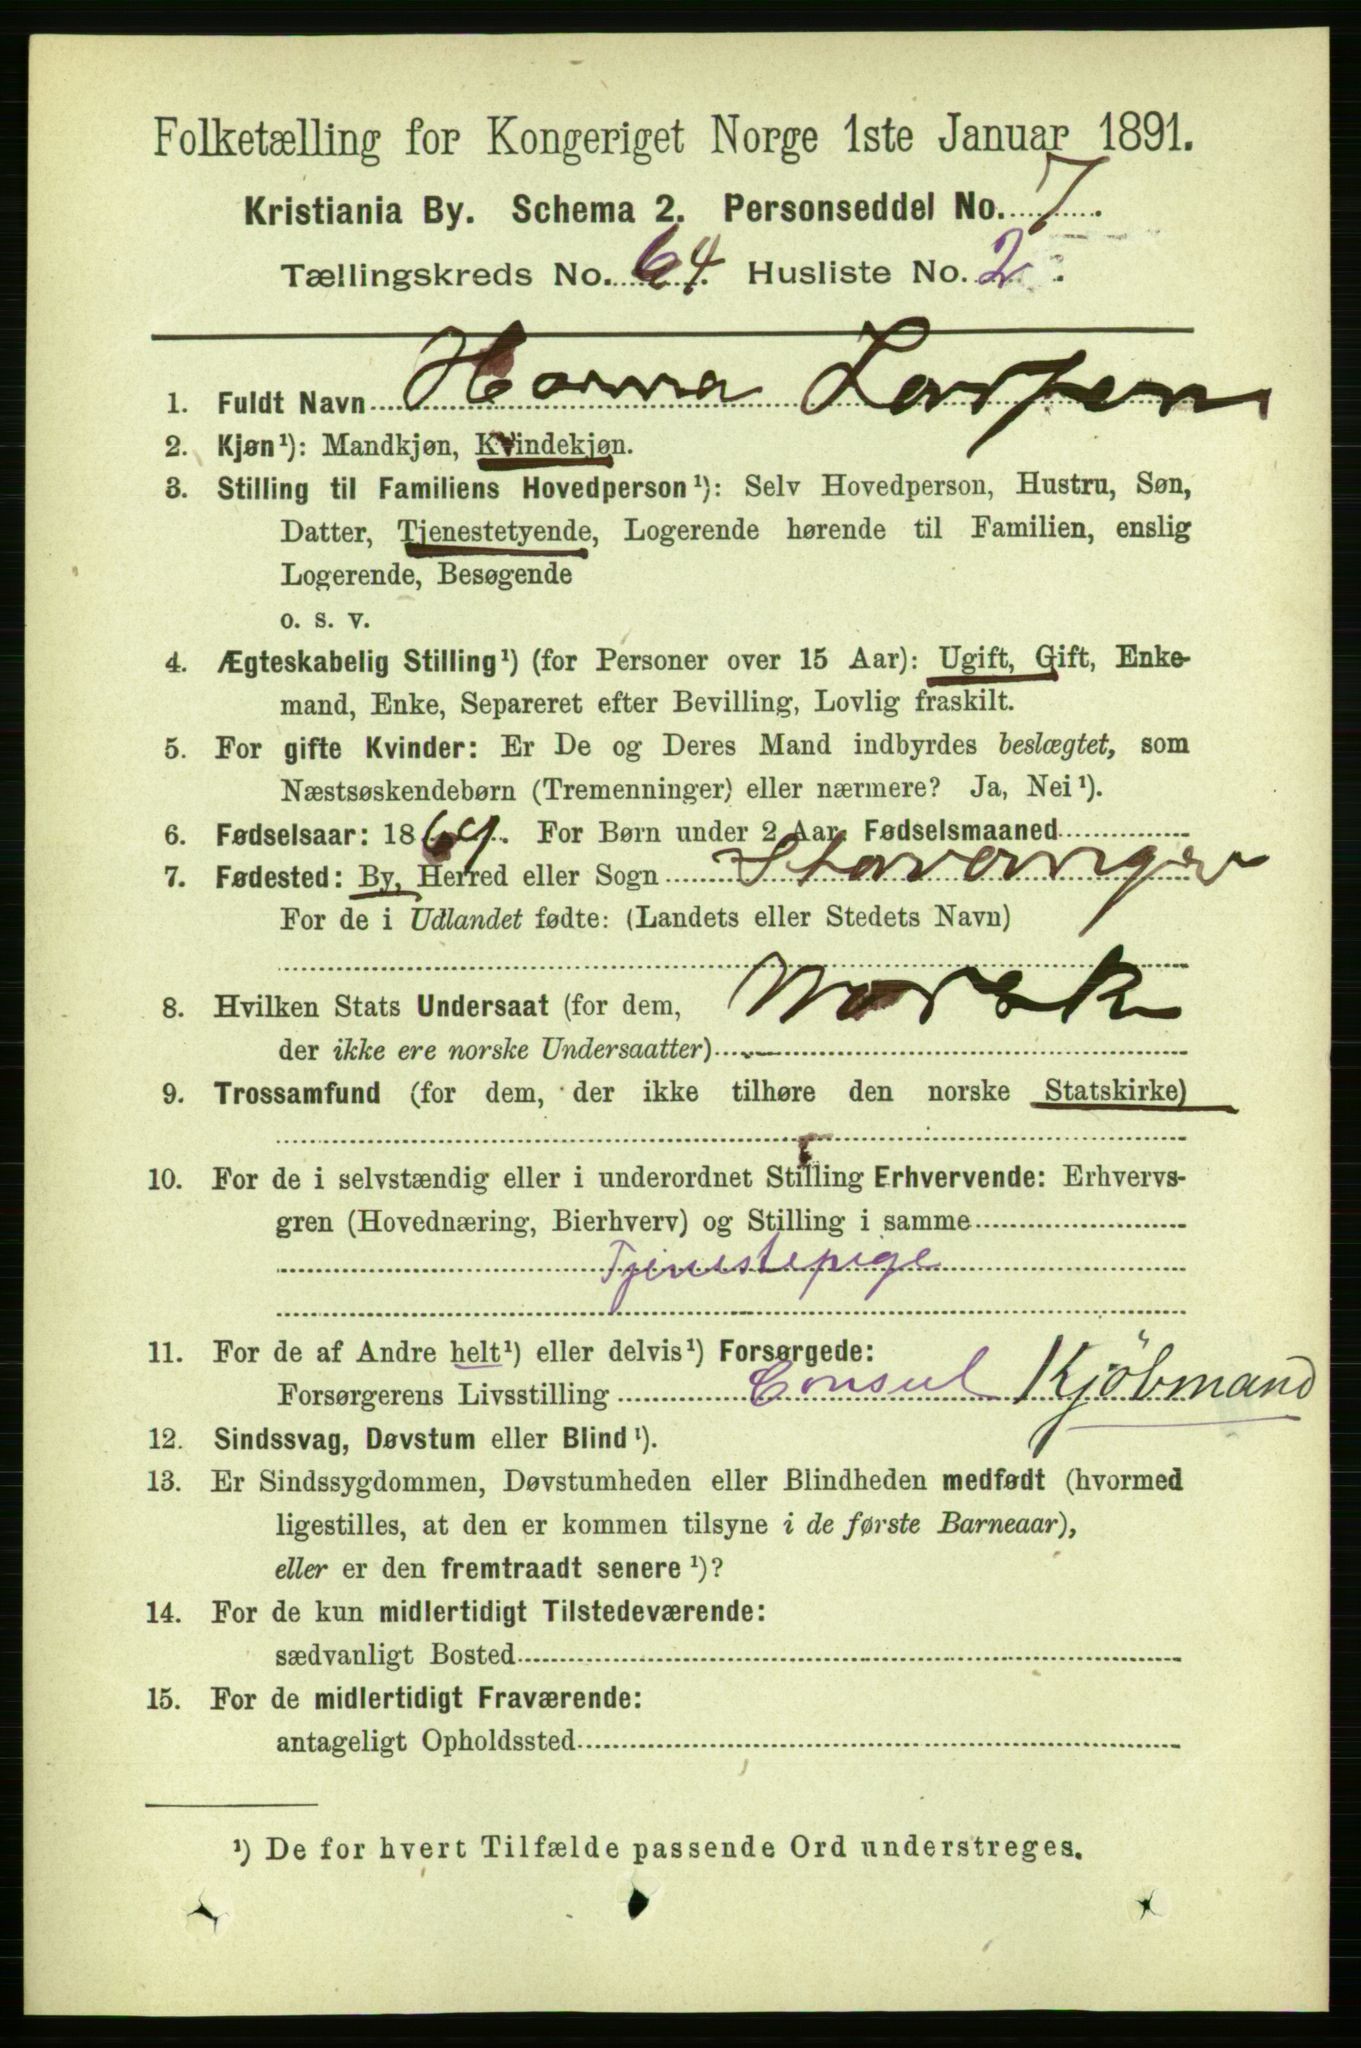 Folketælling for Kongeriget Norge 1ste Januar 1891.
Kristiania By. Schema 2. Personseddel No. 7.
Tællingskreds No. 64. Husliste No. 2.
1. Fuldt Navn Hanna Larsen
2. Kjøn¹): Mandkjøn, Kvindekjøn.
3. Stilling til Familiens Hovedperson¹): Selv Hovedperson, Hustru, Søn,
Datter, Tjenestetyende, Logerende hørende til Familien, enslig
Logerende, Besøgende
o. s. v.
4. Ægteskabelig Stilling¹) (for Personer over 15 Aar): Ugift, Gift, Enke-
mand, Enke, Separeret efter Bevilling, Lovlig fraskilt.
5. For gifte Kvinder: Er De og Deres Mand indbyrdes beslægtet, som
Næstsøskendebørn (Tremenninger) eller nærmere? Ja, Nei¹).
6. Fødselsaar: 1864. For Børn under 2 Aar, Fødselsmaaned
7. Fødested: By, Herred eller Sogn Stavanger
For de i Udlandet fødte: (Landets eller Stedets Navn)
8. Hvilken Stats Undersaat (for dem, Norsk
der ikke ere norske Undersaatter)
9. Trossamfund (for dem, der ikke tilhøre den norske Statskirke)
10. For de i selvstændig eller i underordnet Stilling Erhvervende: Erhvervs-
gren (Hovednæring, Bierhverv) og Stilling i samme
Tjenestepige
11. For de af Andre helt¹) eller delvis¹) Forsørgede:
Forsørgerens Livsstilling Consul Kjöbmand
12. Sindssvag, Døvstum eller Blind¹).
13. Er Sindssygdommen, Døvstumheden eller Blindheden medfødt (hvormed
ligestilles, at den er kommen tilsyne i de første Barneaar),
eller er den fremtraadt senere¹)?
14. For de kun midlertidigt Tilstedeværende:
sædvanligt Bosted
15. For de midlertidigt Fraværende:
antageligt Opholdssted
¹) De for hvert Tilfælde passende Ord understreges.